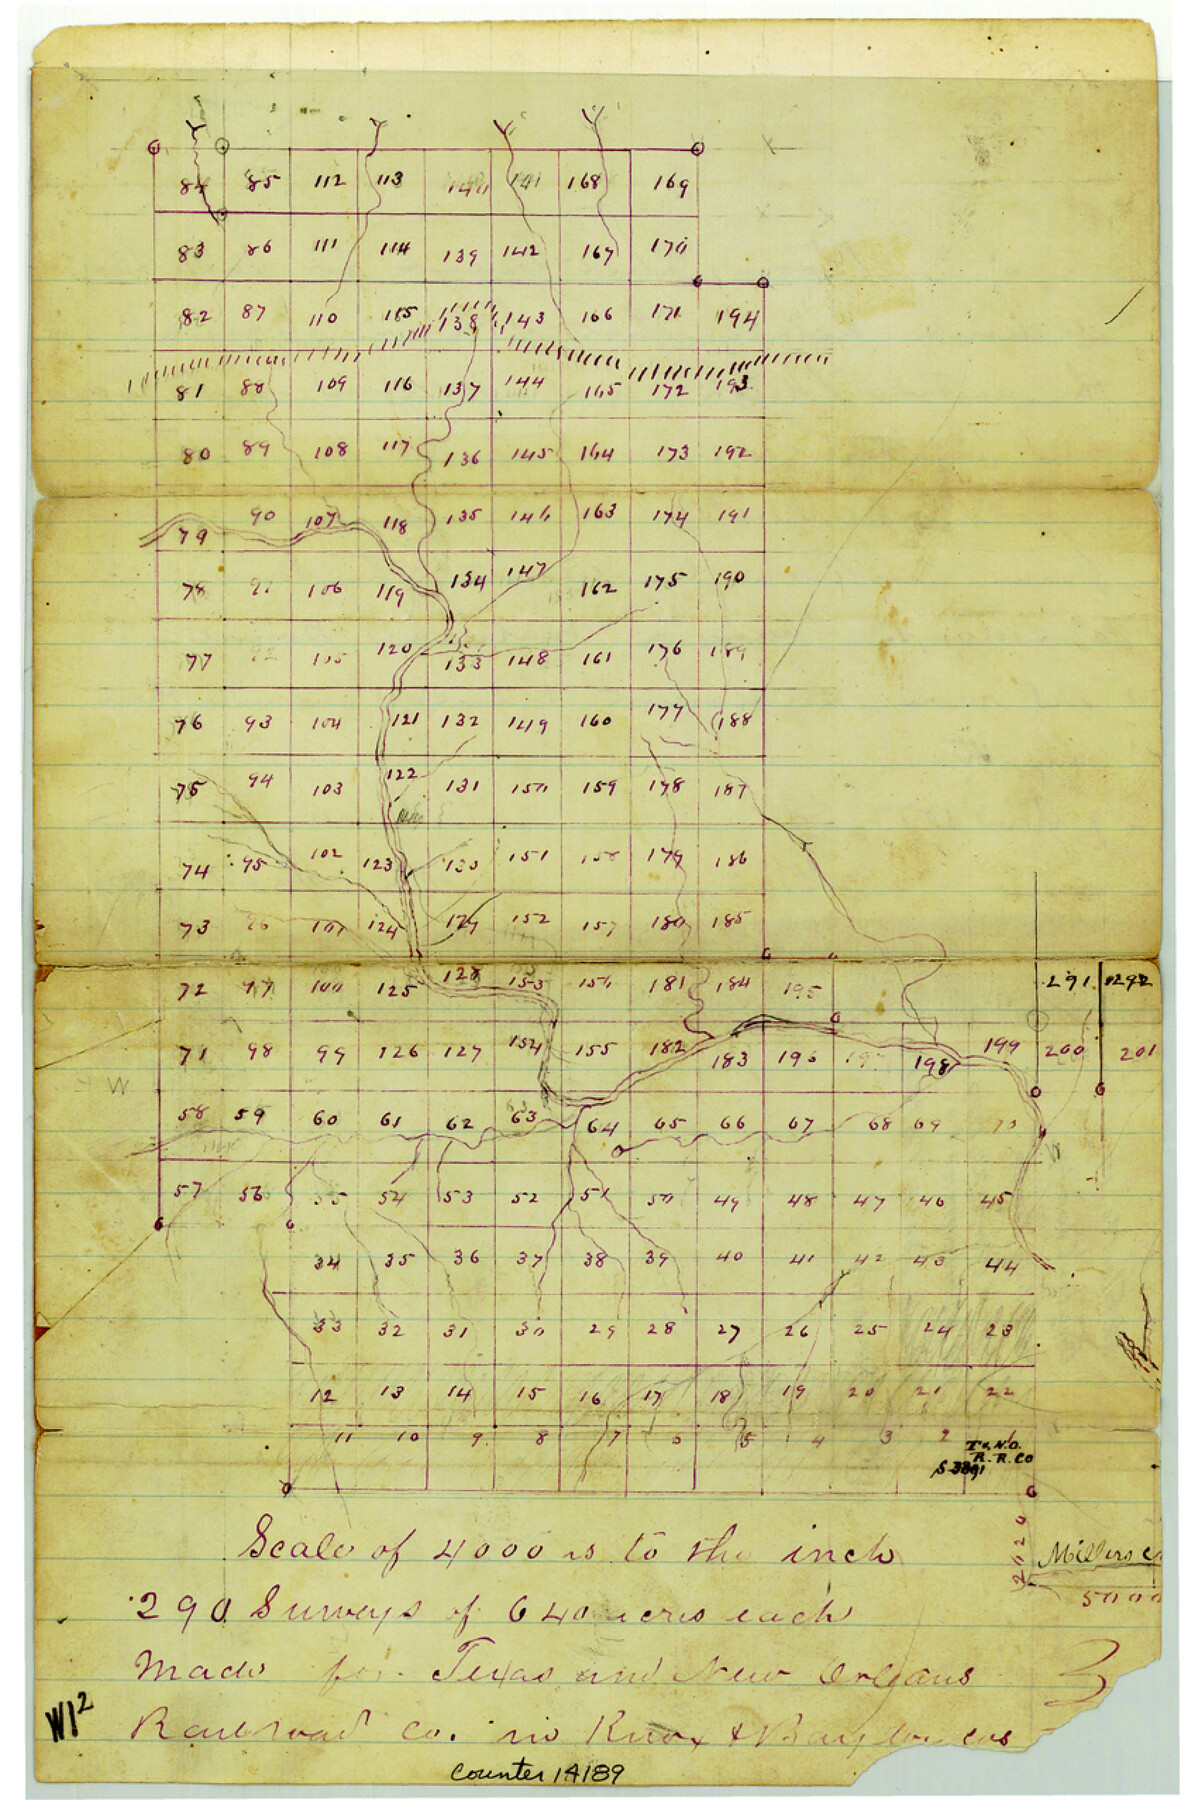 84 85 112 113 140 141 168 169
83 86 111 114 139 142 167 170
82 87 110 115 138 143 166 171 194
81 88 109 116 137 144 165 172 193
80 89 108 117 136 145 164 173 192
79 90 107 118 135 146 163 174 191
78 91 106 119 134 147 162 175 190
77 92 105 120 133 148 161 176 189
76 93 104 121 132 149 160 177 188
75 94 103 122 131 150 159 178 187
74 95 102 123 130 151 158 179 186
73 96 101 124 129 152 157 180 185
72 97 100 125 128 153 156 181 184 195 291 292
71 98 99 126 127 154 155 182 183 196 197 198 199 200 201
W
58 59 60 61 62 63 64 65 66 67 68 69 70
57 56 55 54 53 52 51 50 49 48 47 46 45
34 35 36 37 38 39 40 41 42 43 44
33 32 31 30 29 28 27 26 25 24 23
12 13 14 15 16 17 18 19 20 21 22
11 10 9 8 7 6 5 4 3 2 1
T & N.O.
R.R. Co
S-3891
Scale of 4000 vs to the inch
Millers
290 Surveys of 640 acres each
Made for Texas and New Orleans
Railroad Co. in Knox & Baylor cos
W1²
Counter 14189